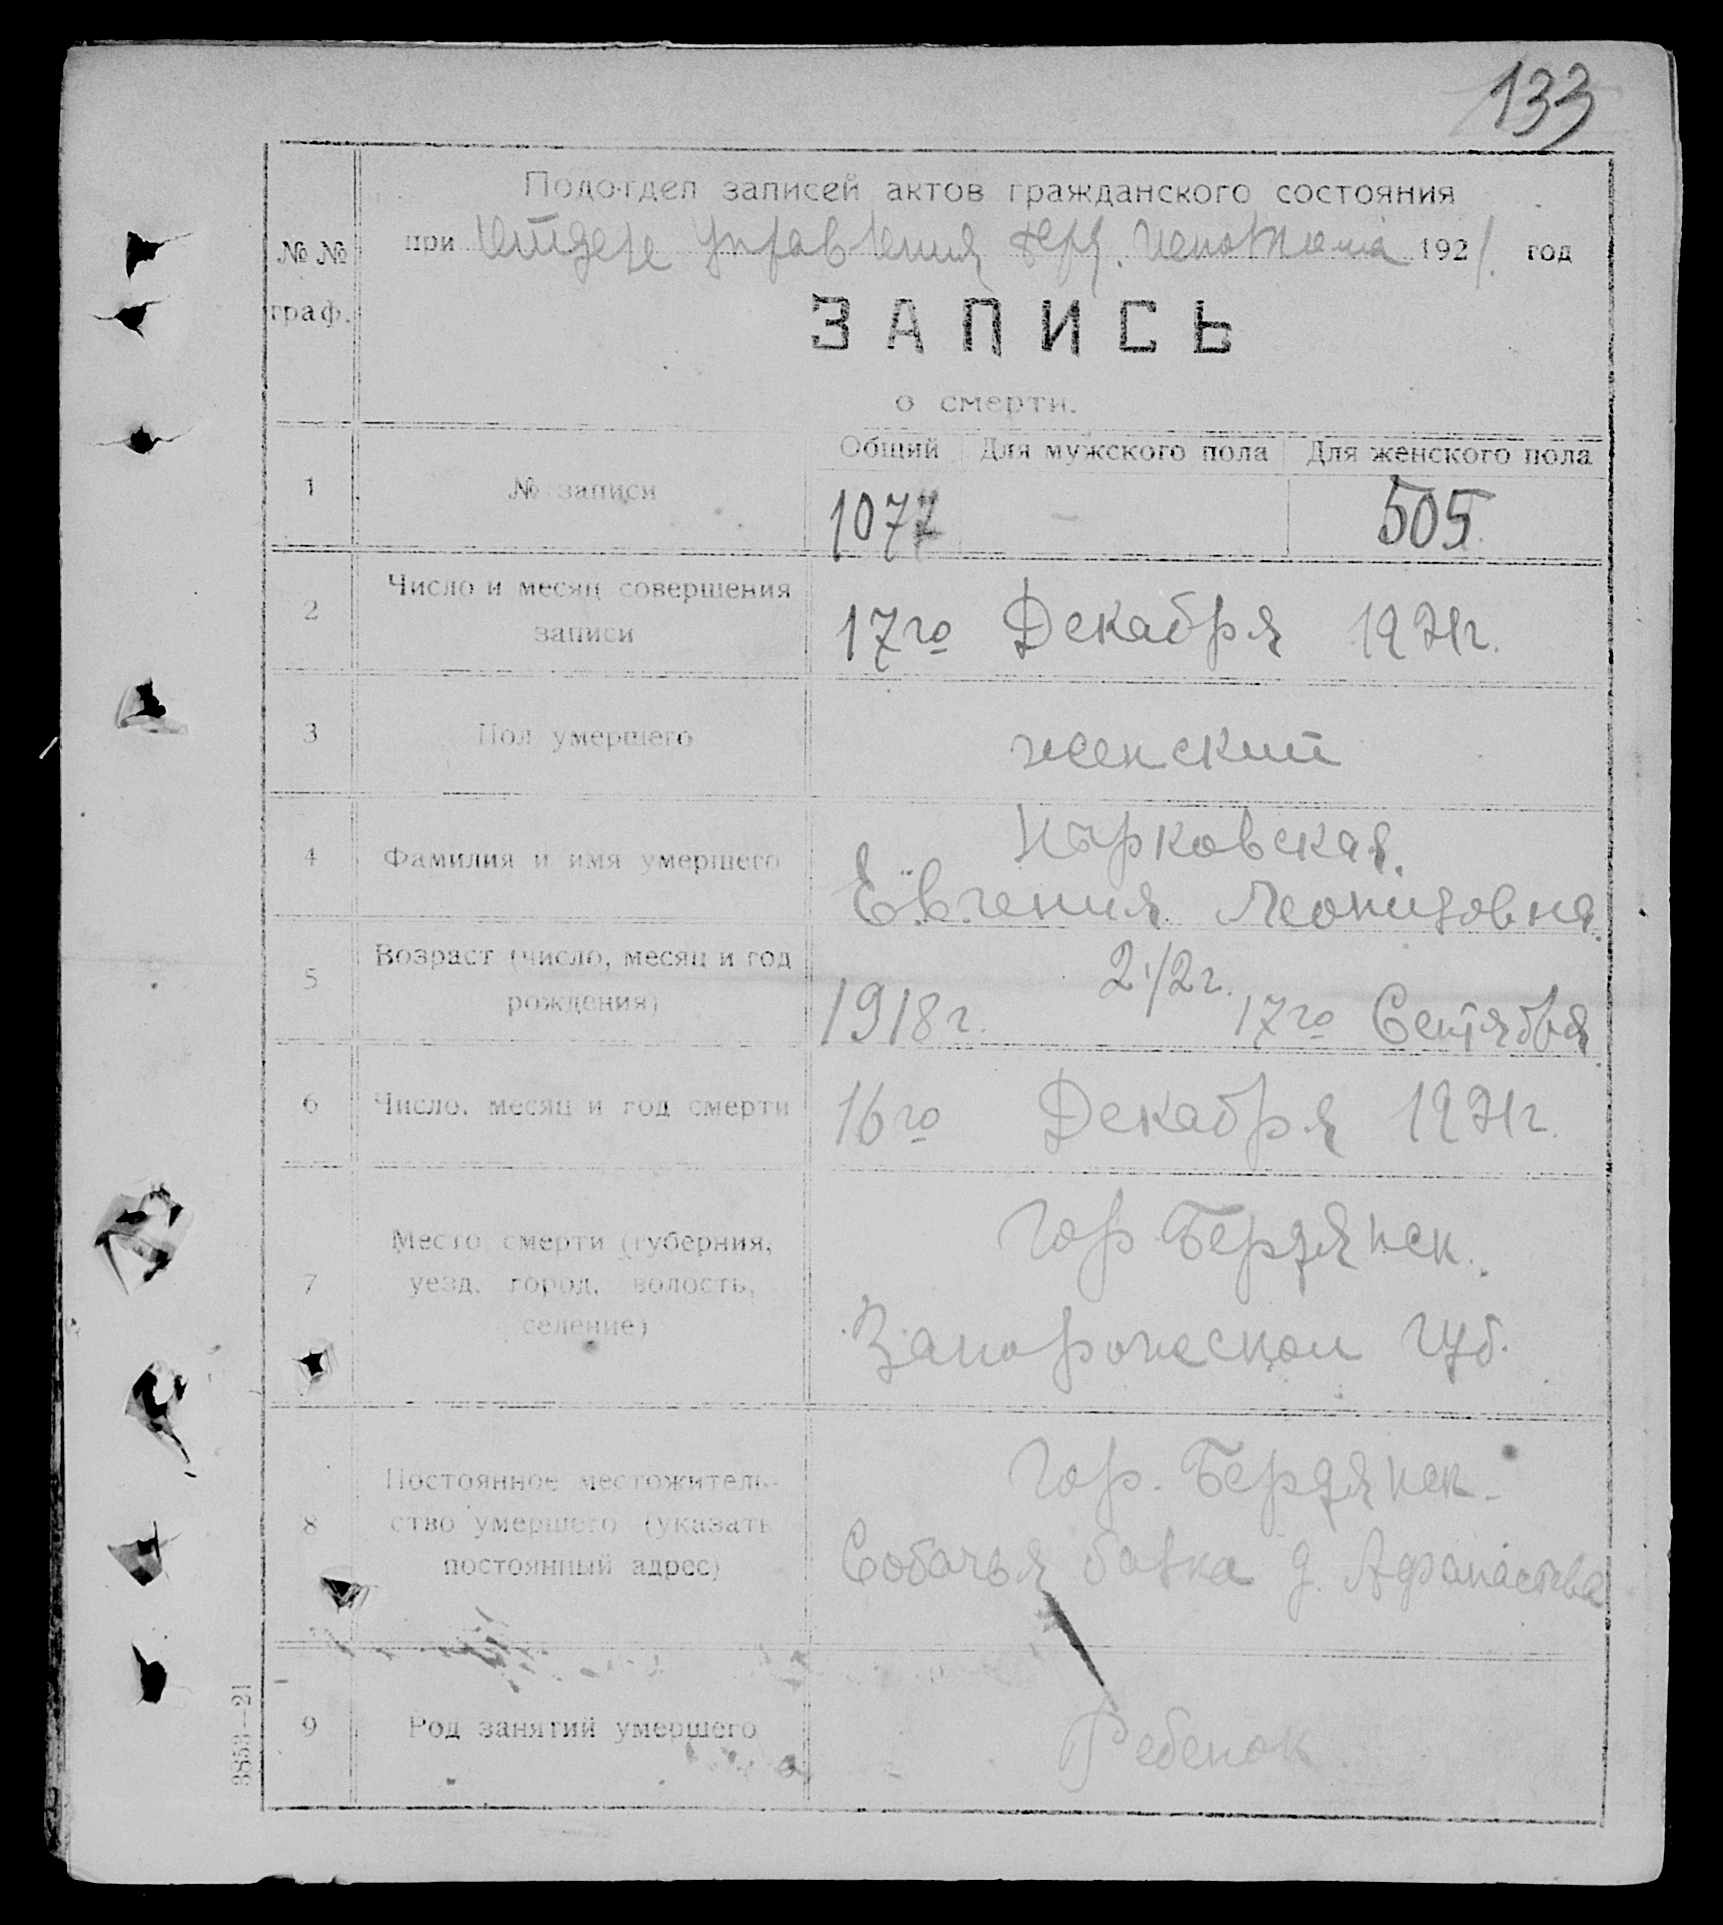 133
Подотдел записей актов гражданского состояния
при Отделе Управления Берд. Исполкома 1921 год
№ №
граф.
ЗАПИСЬ
о смерти.
Общий Для мужского пола Для женского пола
1 № записи 1077 — 505
2 Число и месяц совершения
записи
17го Декабря 1921г.
3 Пол умершего женский
4 Фамилия и имя умершего
Евгения Леонидовна
5 Возраст (число, месяц и год
рождения)
2 1/2 г.
1918г. 17го Сентября
6 Число, месяц и год смерти 16го Декабря 1921г.
7 Место смерти (губерния,
уезд, город, волость,
селение)
Гор. Бердянск.
Запорожской губ.
8 Постоянное местожитель-
ство умершего (указать
постоянный адрес)
Гор. Бердянск.
Собачья балка д. Афанасьева
9 Род занятий умершего Ребенок
3853—21